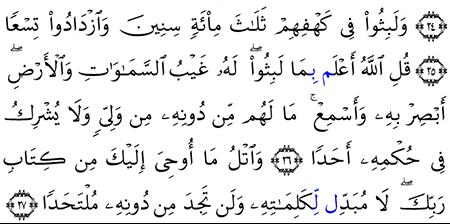 ﴿٢٤﴾ وَلَبِثُوا۟ فِى كَهْفِهِمْ ثَلَـٰثَ مِا۟ئَةٍ سِنِينَ وَٱزْدَادُوا۟ تِسْعًا
﴿٢٥﴾ قُلِ ٱللَّهُ أَعْلَمُ بِمَا لَبِثُوا۟ ۖ لَهُۥ غَيْبُ ٱلسَّمَـٰوَٰتِ وَٱلْأَرْضِ ۖ
أَبْصِرْ بِهِۦ وَأَسْمِعْ ۚ مَا لَهُم مِّن دُونِهِۦ مِن وَلِىٍّ وَلَا يُشْرِكُ
فِى حُكْمِهِۦٓ أَحَدًا ﴿٢٦﴾ وَٱتْلُ مَآ أُوحِىَ إِلَيْكَ مِن كِتَابِ
رَبِّكَ ۖ لَا مُبَدِّلَ لِكَلِمَـٰتِهِۦ وَلَن تَجِدَ مِن دُونِهِۦ مُلْتَحَدًا ﴿٢٧﴾